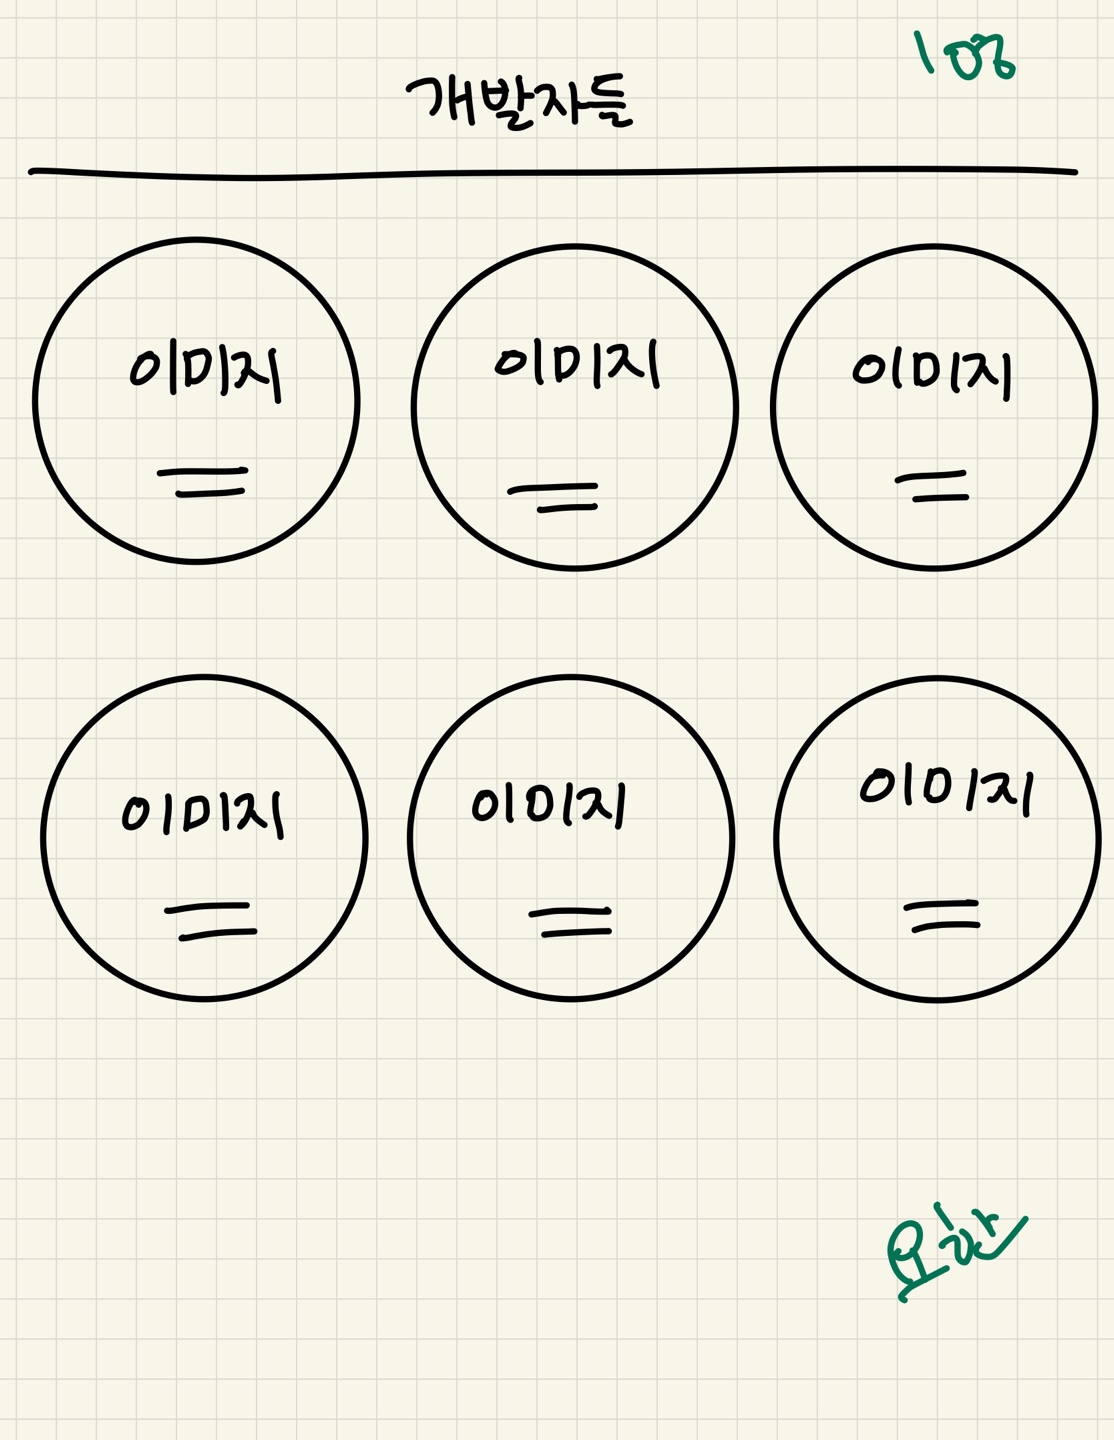 개발자들
이미지
이미지
이미지
이미지
이미지
이미지
요한